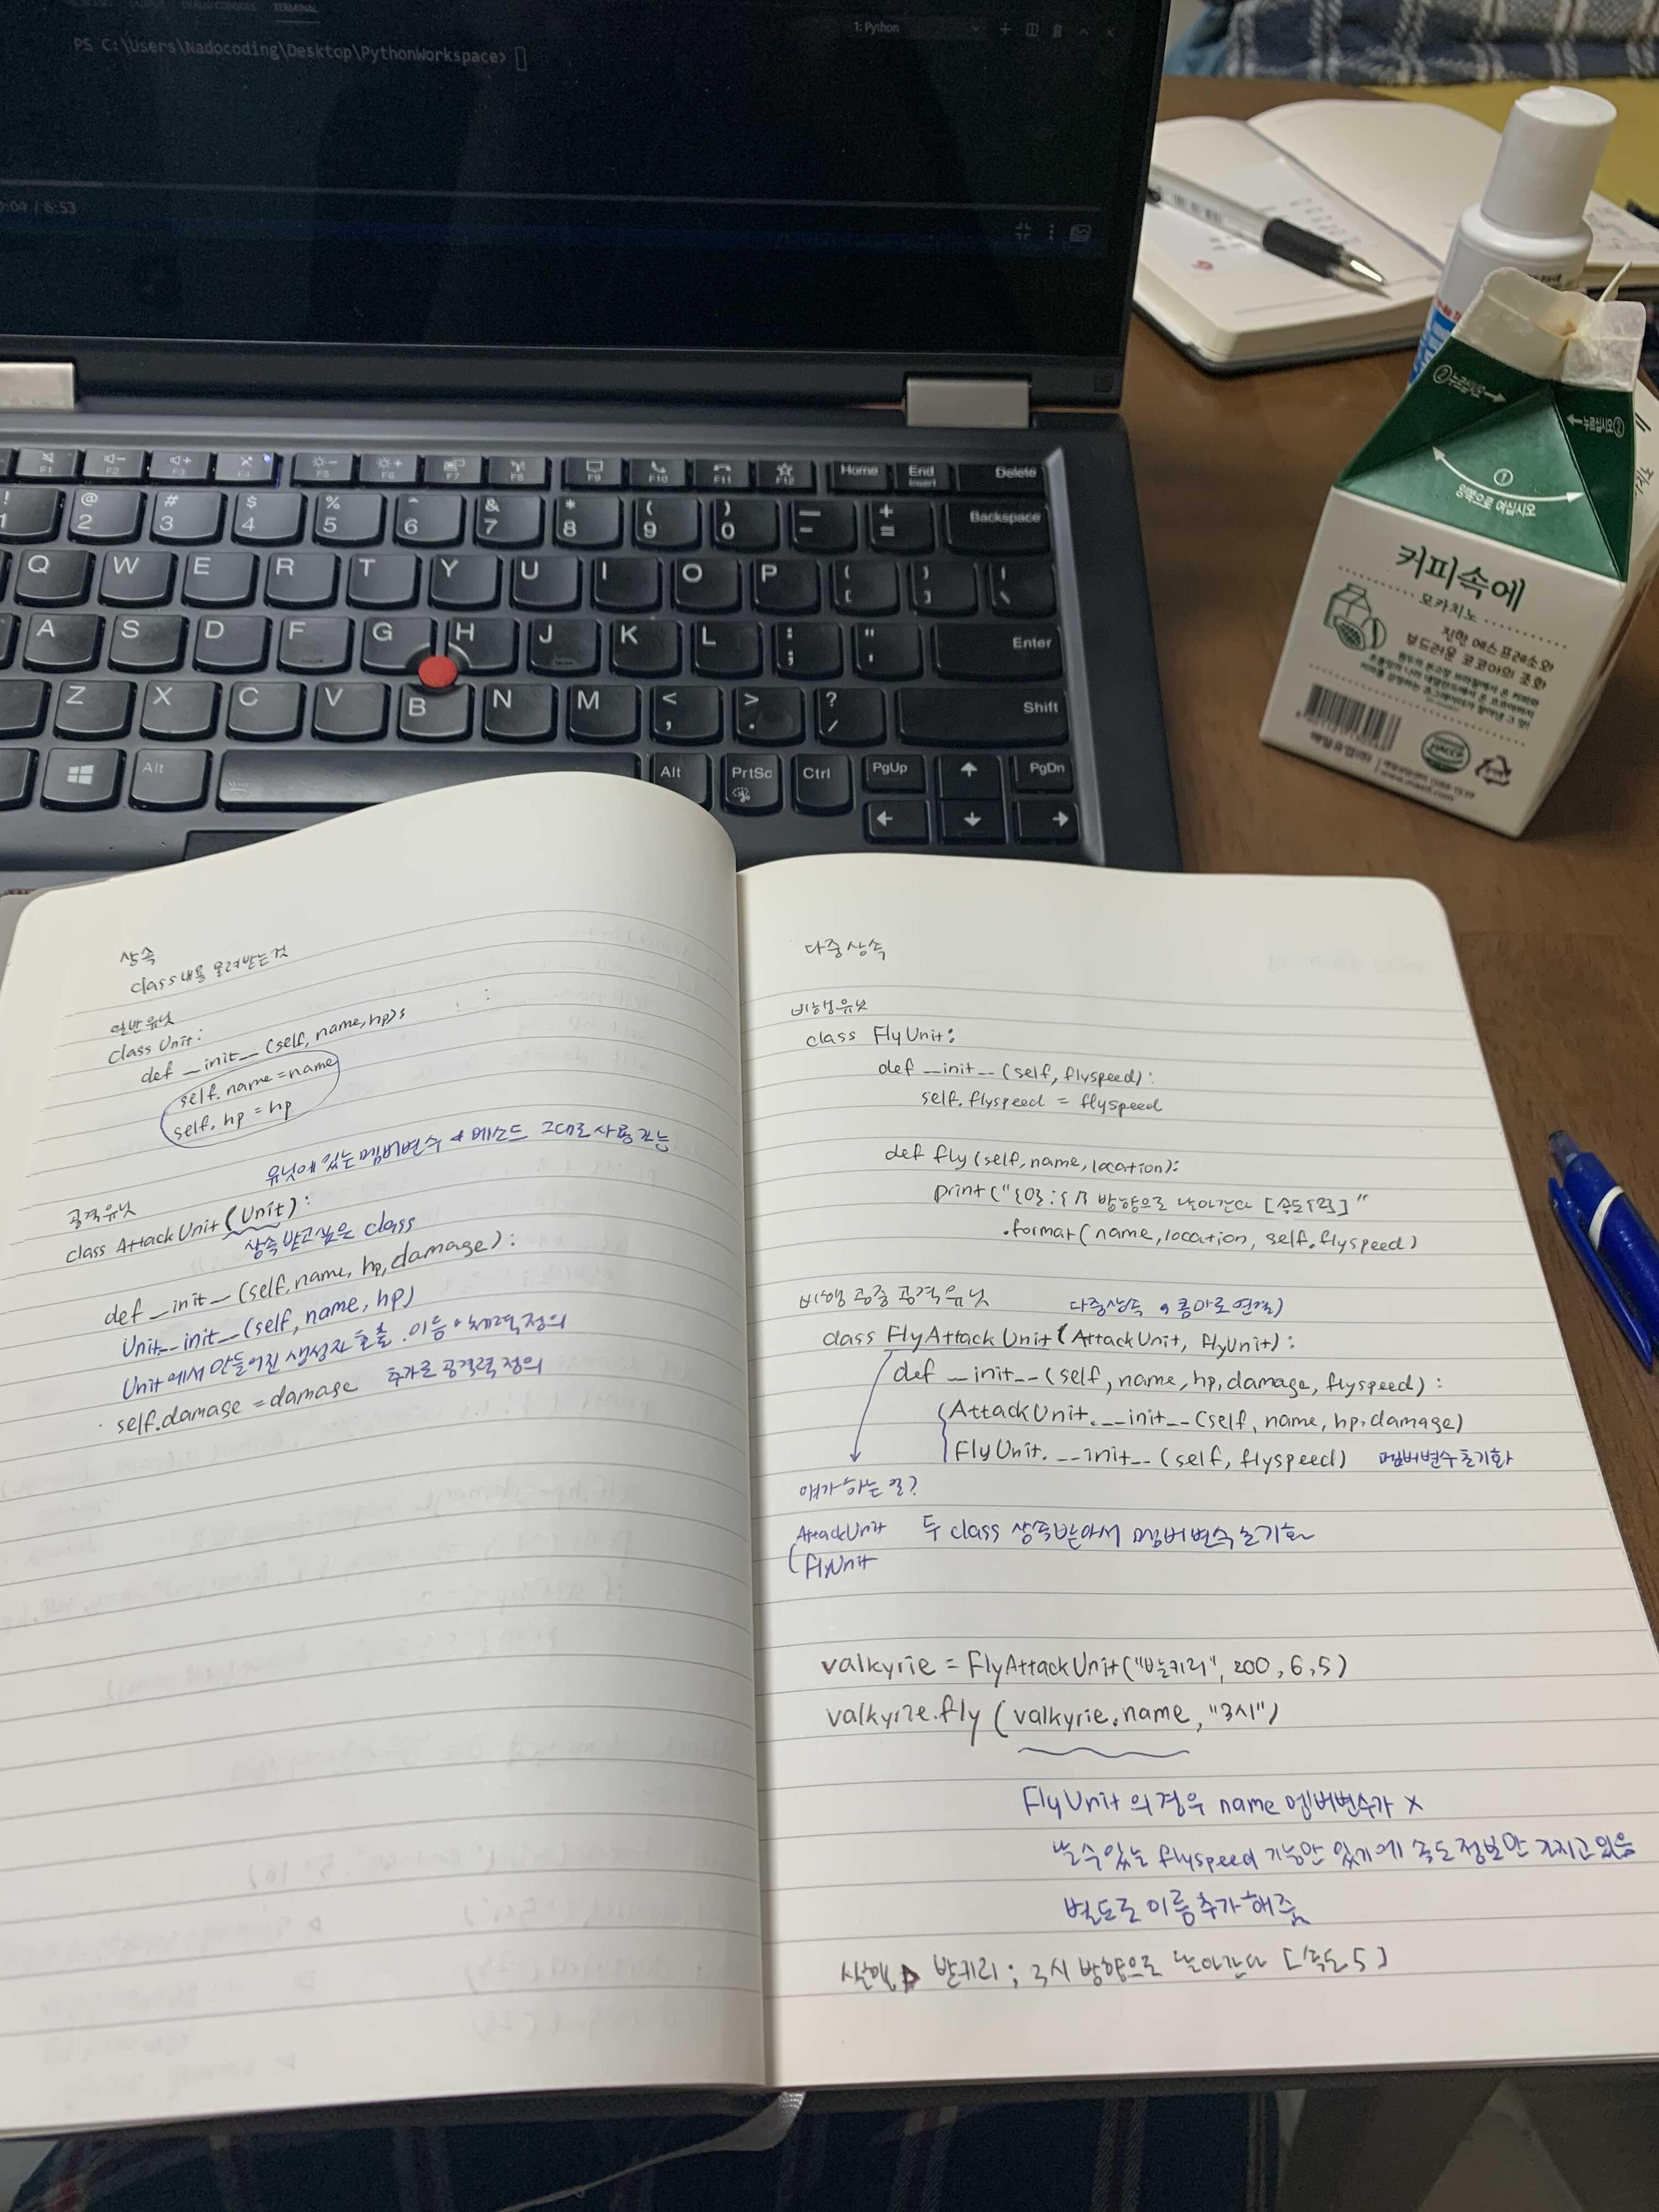 TERMINAL
PS C:\Users\Nadocoding\Desktop\PythonWorkspace>
1: Python
0:04 / 6:53
F1 F2 F3 F4 F5 F6 F7 F8 F9 F10 F11 F12 Home End Insert Delete
! 1 @ 2 # 3 $ 4 % 5 ^ 6 & 7 * 8 ( 9 ) 0 _ - + = Backspace
Q W E R T Y U I O P { [ } ] | \
A S D F G H J K L : ; " ' Enter
Z X C V B N M < , > . ? / Shift
Alt Alt PrtSc Ctrl PgUp PgDn
①
양쪽으로 여십시오
커피속에
모카치노
진한 에스프레소와
부드러운 코코아의 조화
매일유업(주)
HACCP
www.maeil.com
상속
class 내용 물려받는 것
일반 유닛
class Unit:
def __init__ (self, name, hp):
self.name = name
self.hp = hp
유닛에 있는 멤버변수 & 메소드 그대로 사용가능
공격유닛
class AttackUnit (Unit):
상속 받고싶은 class
def __init__ (self, name, hp, damage):
Unit.__init__ (self, name, hp)
Unit에서 만들어진 생성자 호출. 이름, 체력 정의
self.damage = damage 추가로 공격력 정의
다중상속
비행유닛
class FlyUnit:
def __init__ (self, flyspeed):
self.flyspeed = flyspeed
def fly (self, name, location):
print("{0} : {1} 방향으로 날아간다 [속도{2}]"
.format( name, location, self.flyspeed)
비행 공중 공격유닛 다중상속 , 콤마로 연결)
class FlyAttack Unit (AttackUnit, FlyUnit):
def __init__ (self, name, hp, damage, flyspeed):
AttackUnit.__init__ (self, name, hp, damage)
FlyUnit.__init__ (self, flyspeed) 멤버변수 초기화
얘가 하는 일?
AttackUnit 두 class 상속받아서 멤버변수 초기화
FlyUnit
valkyrie = FlyAttackUnit("발키리", 200, 6, 5)
valkyrie.fly (valkyrie.name, "3시")
FlyUnit 의 경우 name 멤버변수가 x
날 수 있는 flyspeed 기능만 있기에 속도 정보만 가지고 있음
별도로 이름 추가 해줌
실행 ▷ 발키리 ; 3시 방향으로 날아간다 [속도 5]